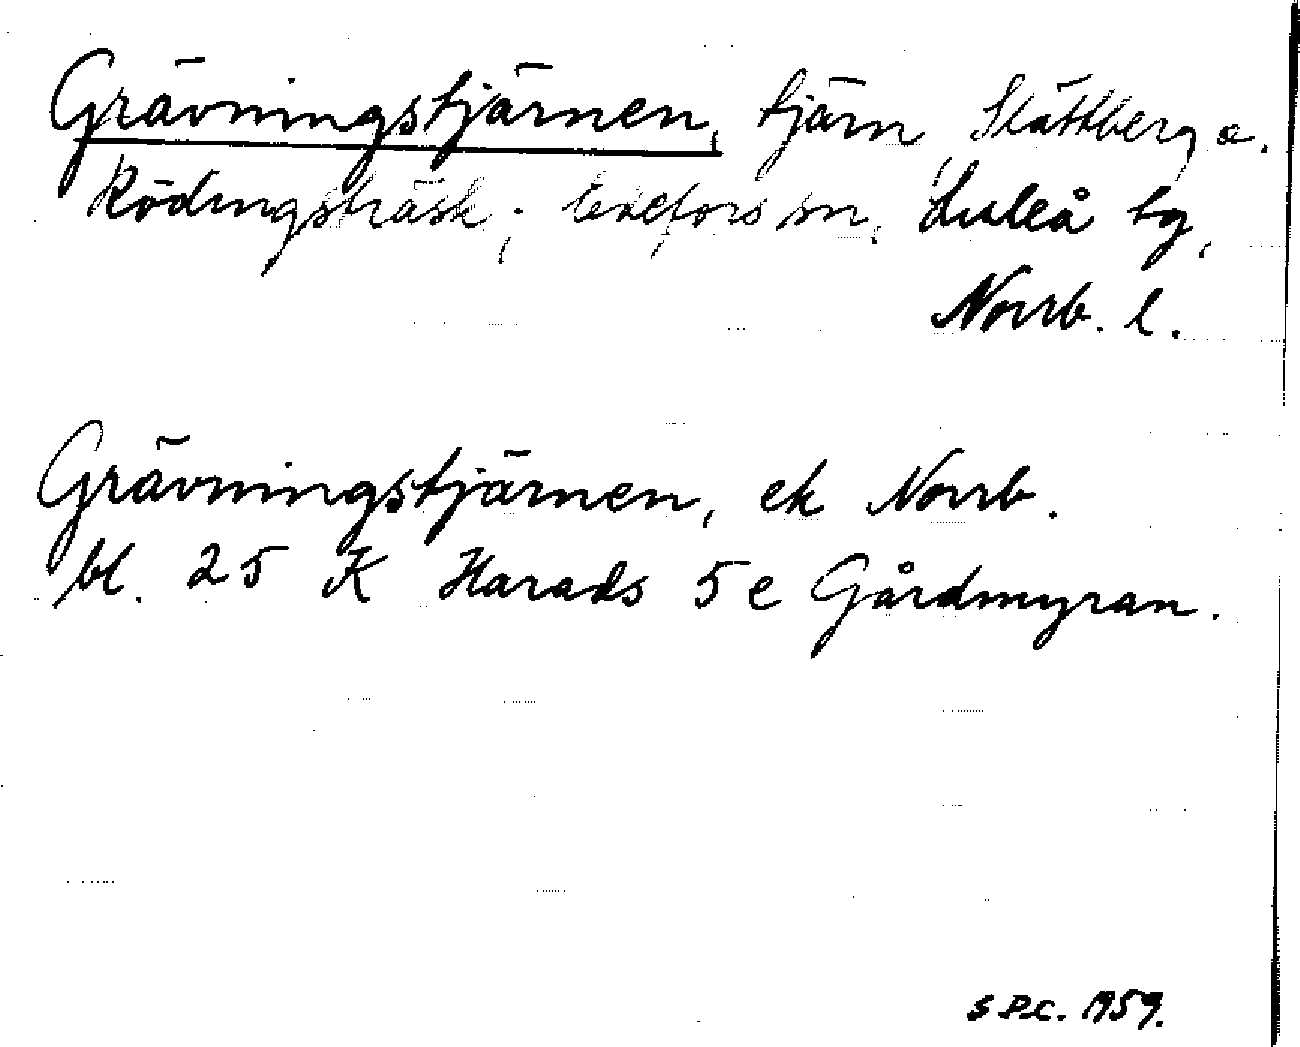 Grävningstjärnen, tjärn, Slättberg o.
Rödingsträsk, Edefors sn, Luleå tg,
Norrb. l.
Grävningstjärnen, ek Norrb.
bl. 25 K Harads 5 e Gårdmyran.
S P.C. 1959.